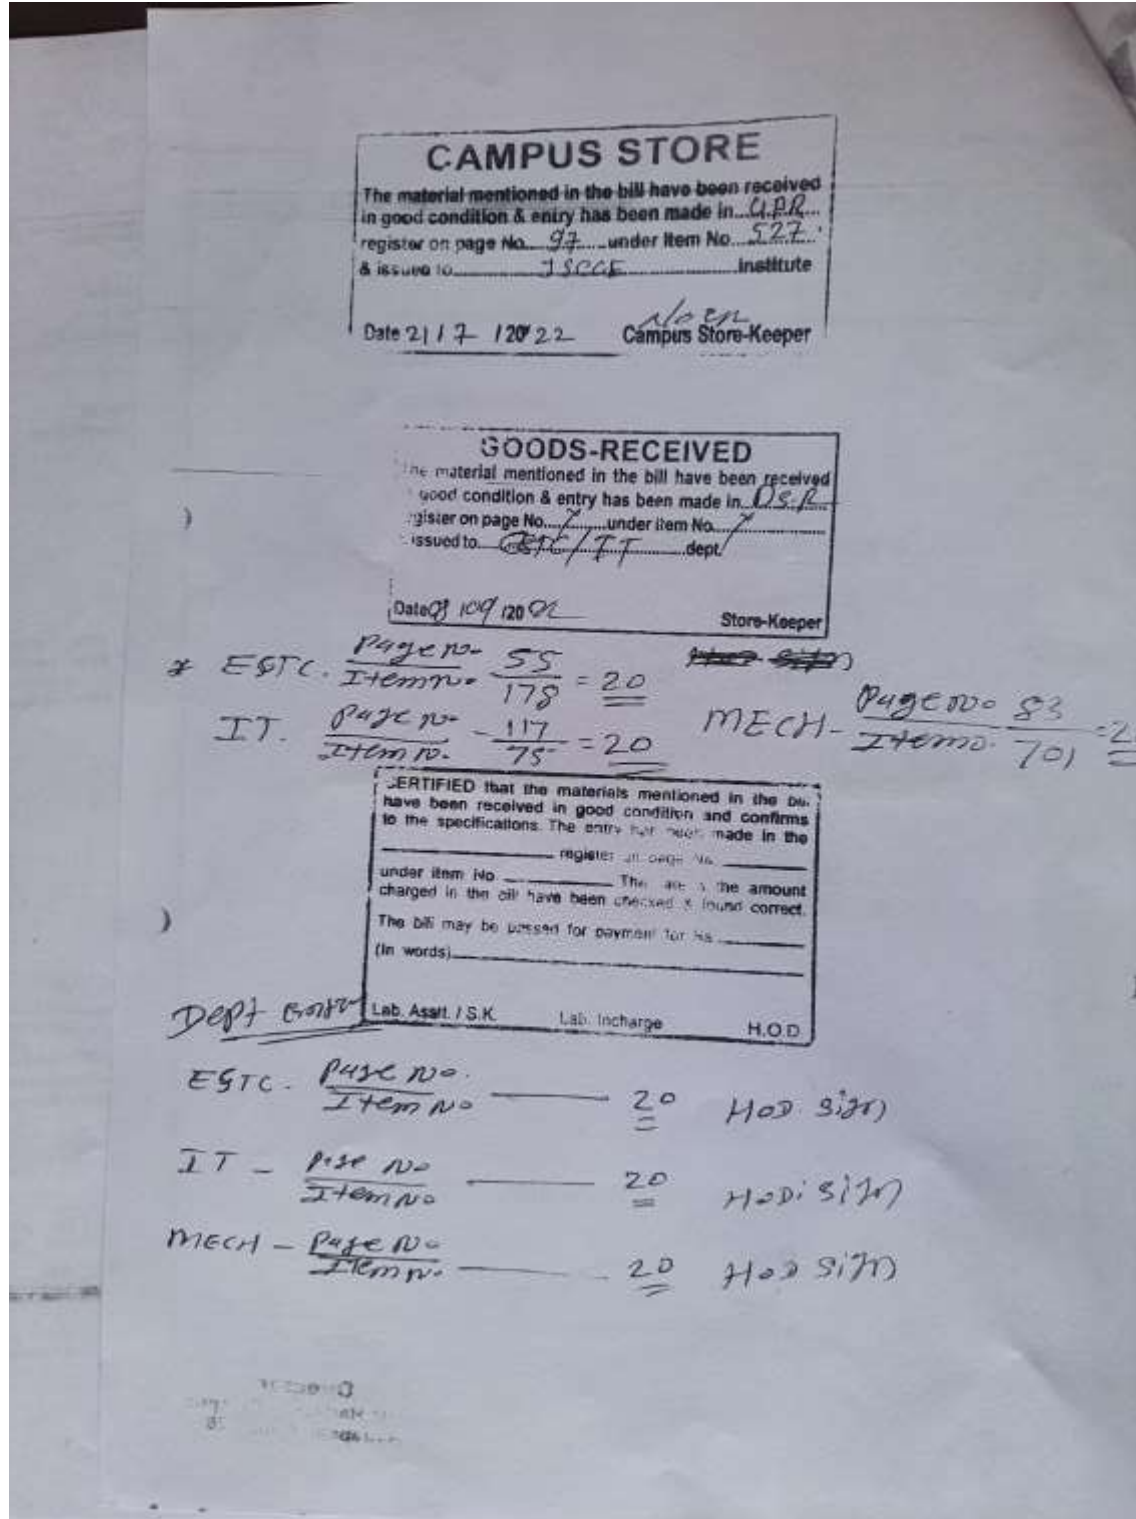 CAMPUS STORE
The material mentioned in the bill have been received
in good condition & entry has been made in
register on page No. 97 under Item No. 527
& issued to JSCOE institute
Date 21 / 7 / 2022 Campus Store-Keeper
GOODS-RECEIVED
The material mentioned in the bill have been received
good condition & entry has been made in D.S.R
gister on page No. under Item No.
issued to E&TC / IT dept.
Date /09 /20 Store-Keeper
* E&TC. Page no. 55
Item no. 178 = 20
IT. Page no - 117
Item no. 75 = 20
MECH - Page no. 83
Item no. 701 =
CERTIFIED that the materials mentioned in the bill
have been received in good condition and confirms
to the specifications. The entry has been made in the
register on page No.
under item No The the amount
charged in the bill have been checked & found correct.
The bill may be passed for payment for Rs.
(In words)
Lab. Asstt. / S.K. Lab. Incharge H.O.D.
Dept
E&TC. Page No.
Item No 20 HOD. Sign
IT - Page No
Item No 20 HOD. Sign
MECH - Page No
Item No. 20 HOD Sign